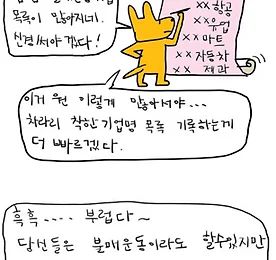 목록이 많아지네.
신경써야겠다!
××항공
××유업
××마트
××자동차
×× 제과
이거 원 이렇게 많아서야...
차라리 착한기업명 목록 기록하는게
더 빠르겠다.
흑흑.... 부럽다~
당신들은 불매운동이라도 할수있지만